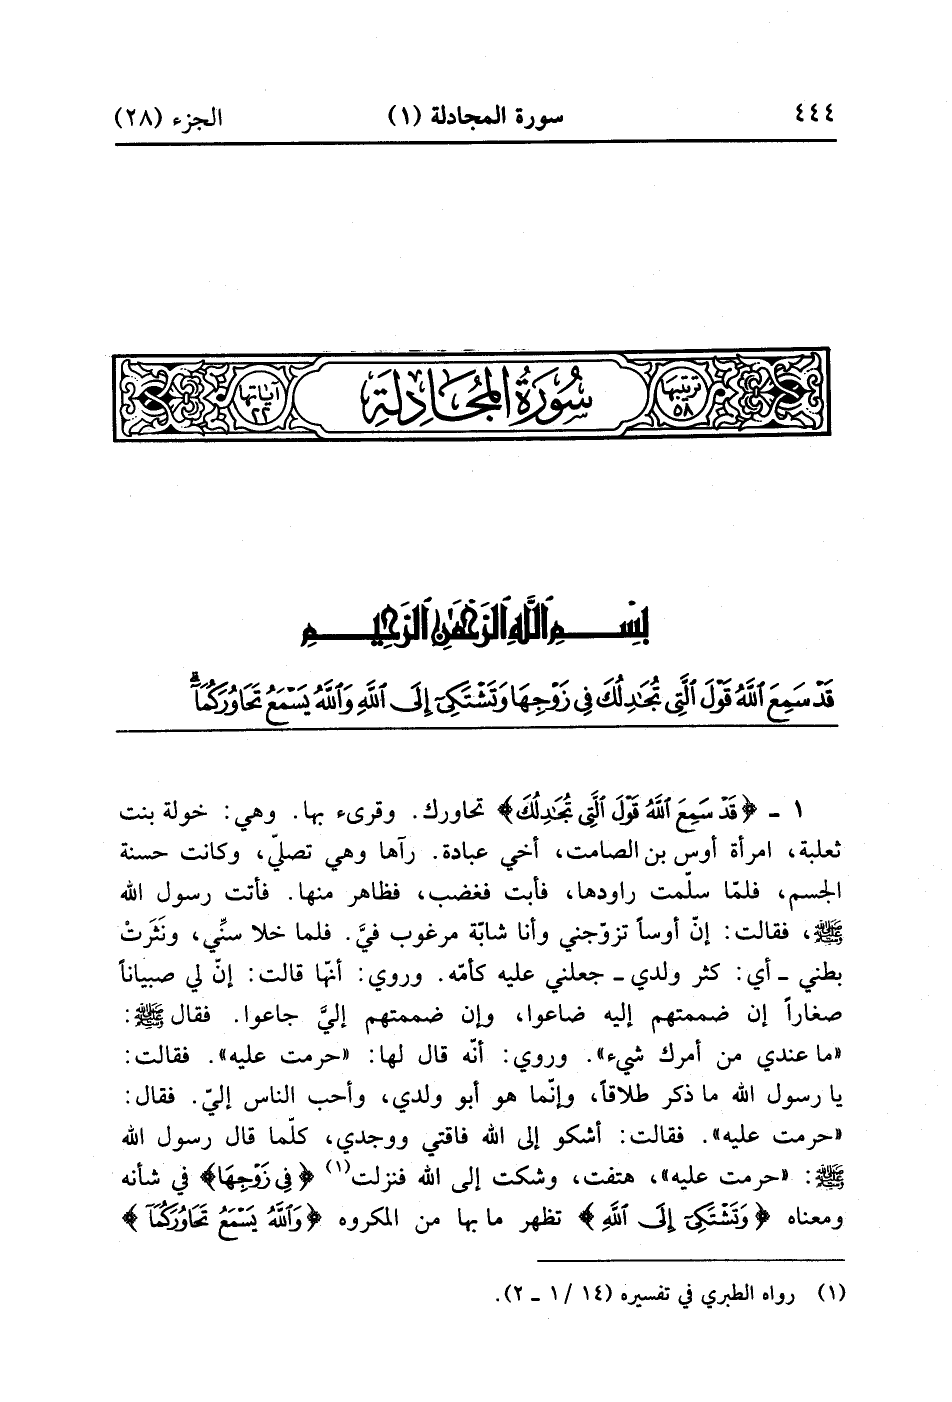 ٤٤٤ سورة المجادلة (١) الجزء (٢٨)
ترتيبها ٥٨ سُورَةُ المُجَادِلَةِ آياتها ٢٢
بِسْمِ اللَّهِ الرَّحْمَٰنِ الرَّحِيمِ
قَدْ سَمِعَ ٱللَّهُ قَوْلَ ٱلَّتِى تُجَٰدِلُكَ فِى زَوْجِهَا وَتَشْتَكِىٓ إِلَى ٱللَّهِ وَٱللَّهُ يَسْمَعُ تَحَاوُرَكُمَآ ۚ
١ ـ ﴿قَدْ سَمِعَ ٱللَّهُ قَوْلَ ٱلَّتِى تُجَٰدِلُكَ﴾ تحاورك. وقرىء بها. وهي: خولة بنت
ثعلبة، امرأة أوس بن الصامت، أخي عبادة. رآها وهي تصليّ، وكانت حسنة
الجسم، فلمّا سلّمت راودها، فأبت فغضب، فظاهر منها. فأتت رسول الله
ﷺ، فقالت: إنّ أوساً تزوّجني وأنا شابّة مرغوب فيَّ. فلما خلا سنِّي، ونَثَرتْ
بطني ـ أي: كثر ولدي ـ جعلني عليه كأمّه. وروي: أنهّا قالت: إنّ لي صبياناً
صغاراً إن ضممتهم إليه ضاعوا، وإن ضممتهم إليَّ جاعوا. فقال ﷺ:
«ما عندي من أمرك شيء». وروي: أنّه قال لها: «حرمت عليه». فقالت:
يا رسول الله ما ذكر طلاقاً، وإنّما هو أبو ولدي، وأحب الناس إليّ. فقال:
«حرمت عليه». فقالت: أشكو إلى الله فاقتي ووجدي، كلّما قال رسول الله
ﷺ: «حرمت عليه»، هتفت، وشكت إلى الله فنزلت(١) ﴿فِى زَوْجِهَا﴾ في شأنه
ومعناه ﴿وَتَشْتَكِىٓ إِلَى ٱللَّهِ﴾ تظهر ما بها من المكروه ﴿وَٱللَّهُ يَسْمَعُ تَحَاوُرَكُمَآ﴾
(١) رواه الطبري في تفسيره (١٤/ ١ ـ ٢).